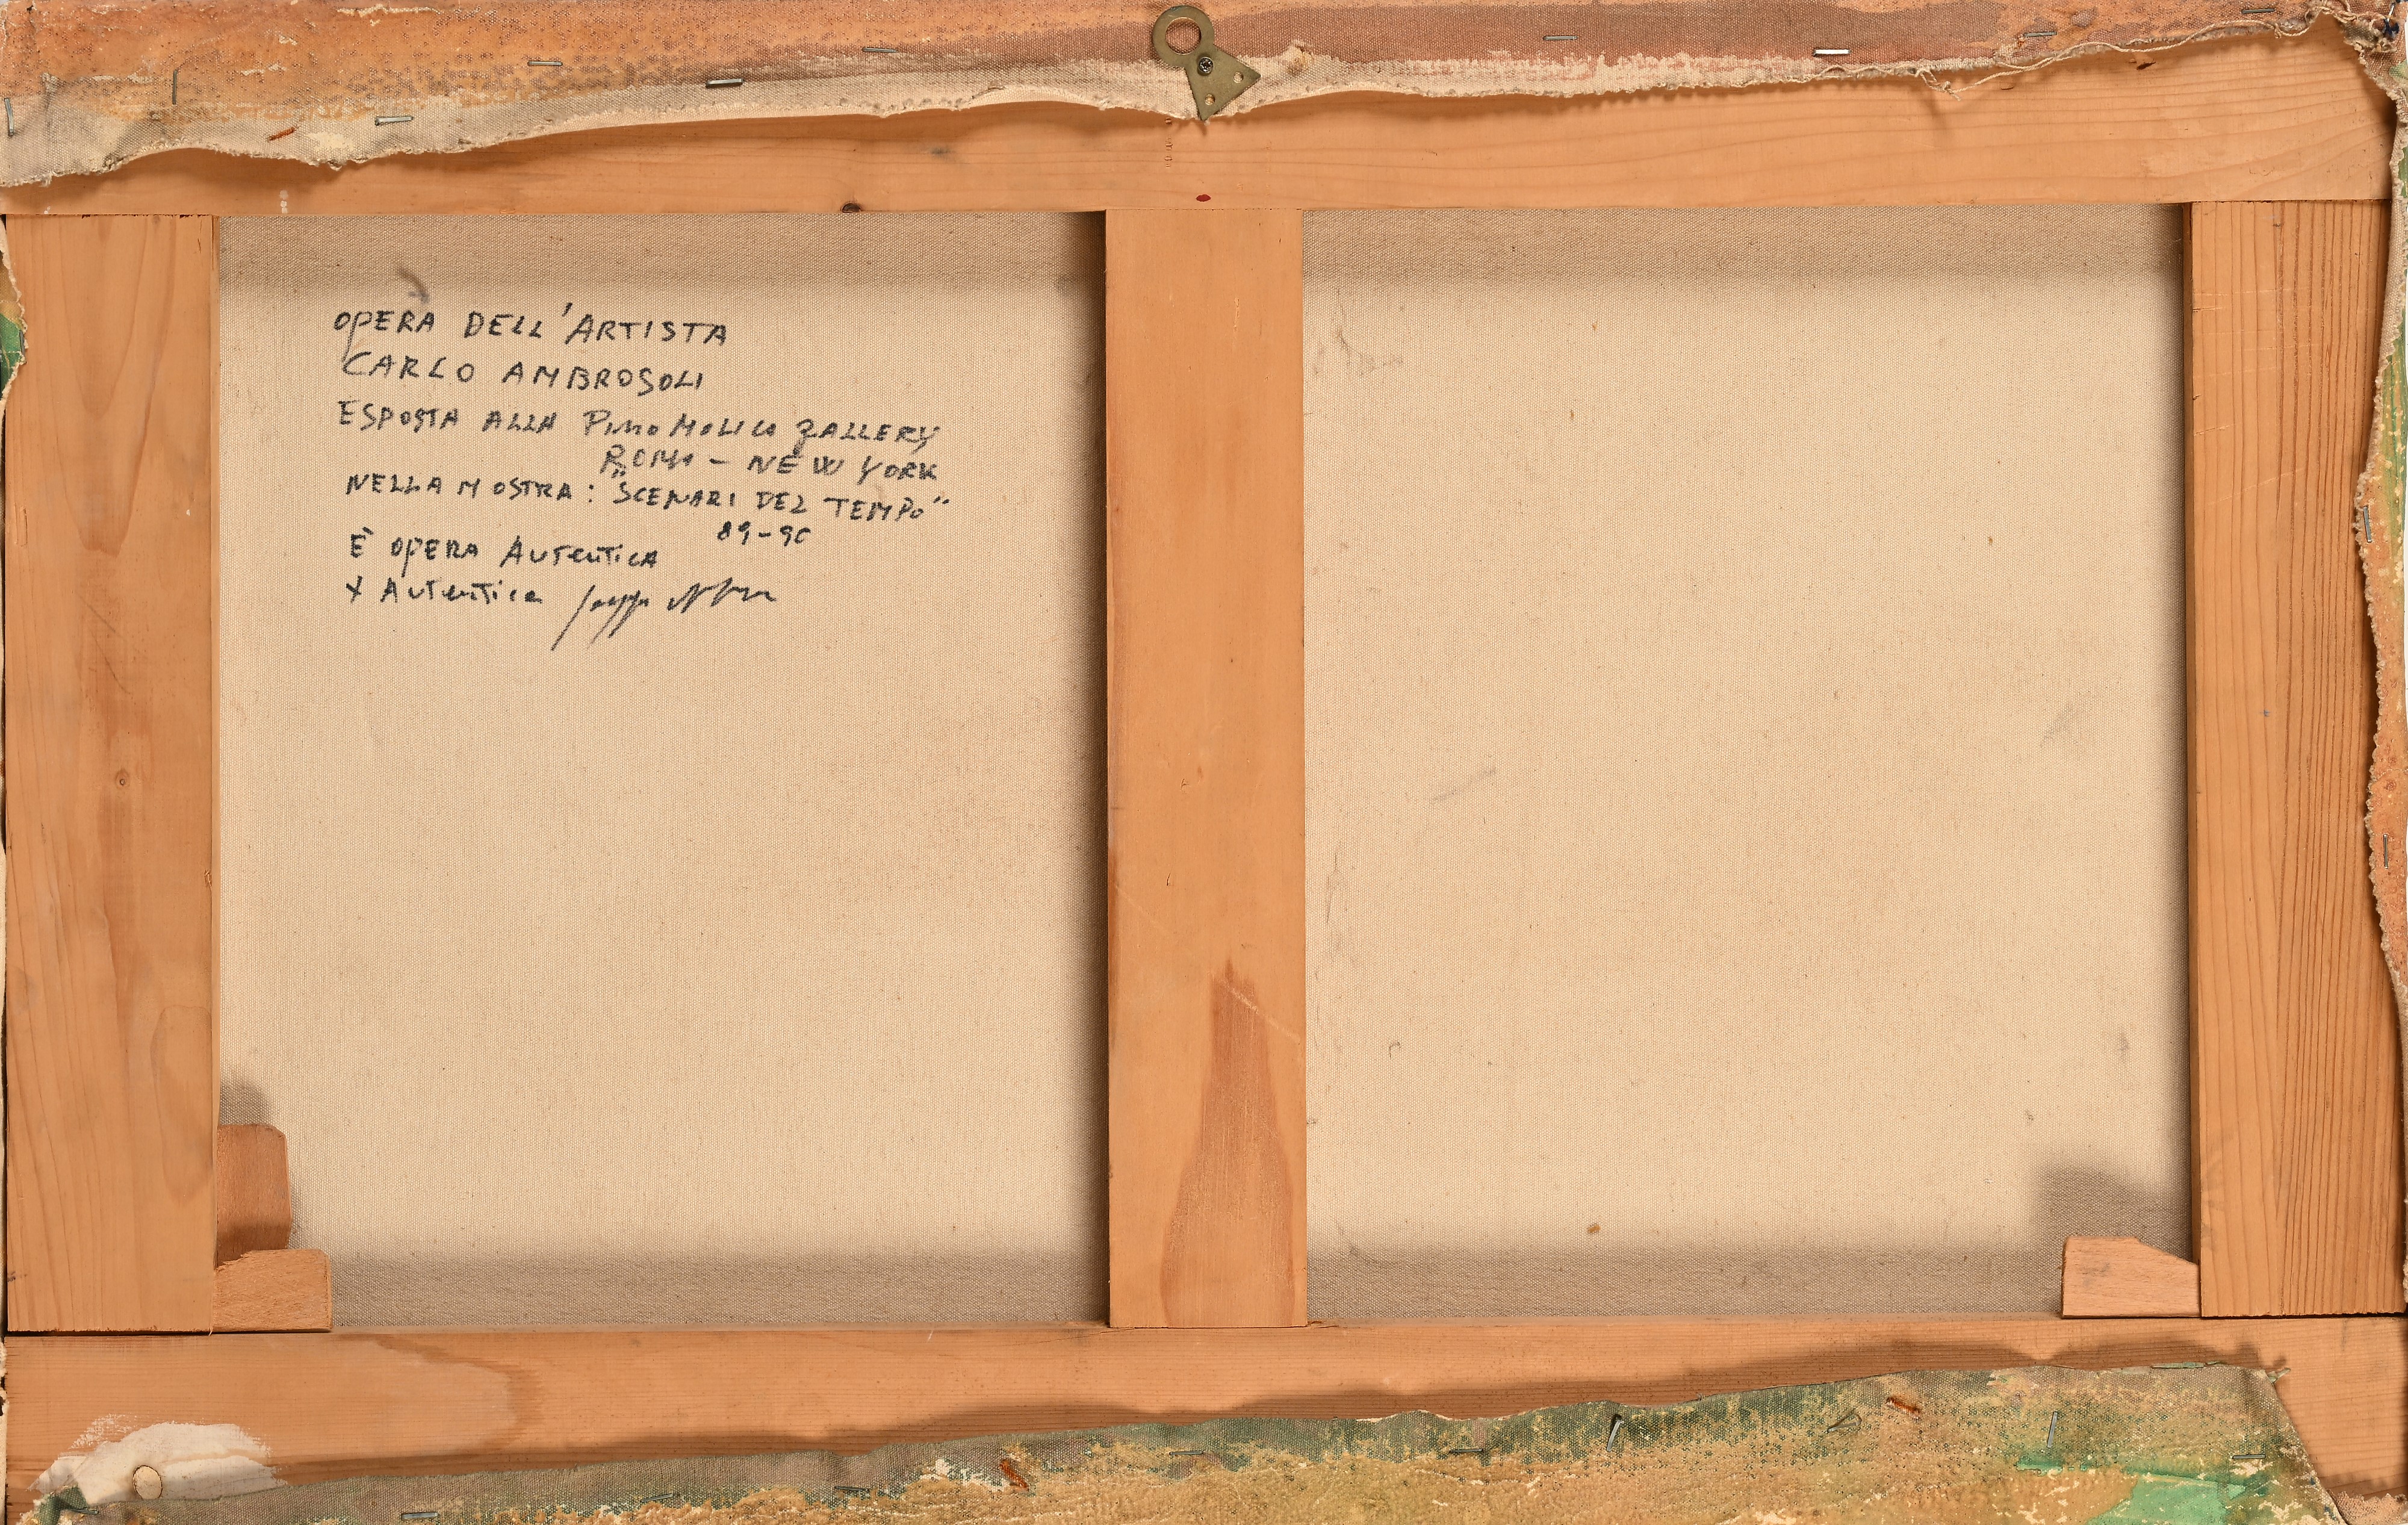 OPERA DELL'ARTISTA
CARLO AMBROSOLI
ESPOSTA ALLA PINO MOLICA GALLERY
ROMA - NEW YORK
NELLA MOSTRA: "SCENARI DEL TEMPO"
89-90
È OPERA AUTENTICA
X AUTENTICA